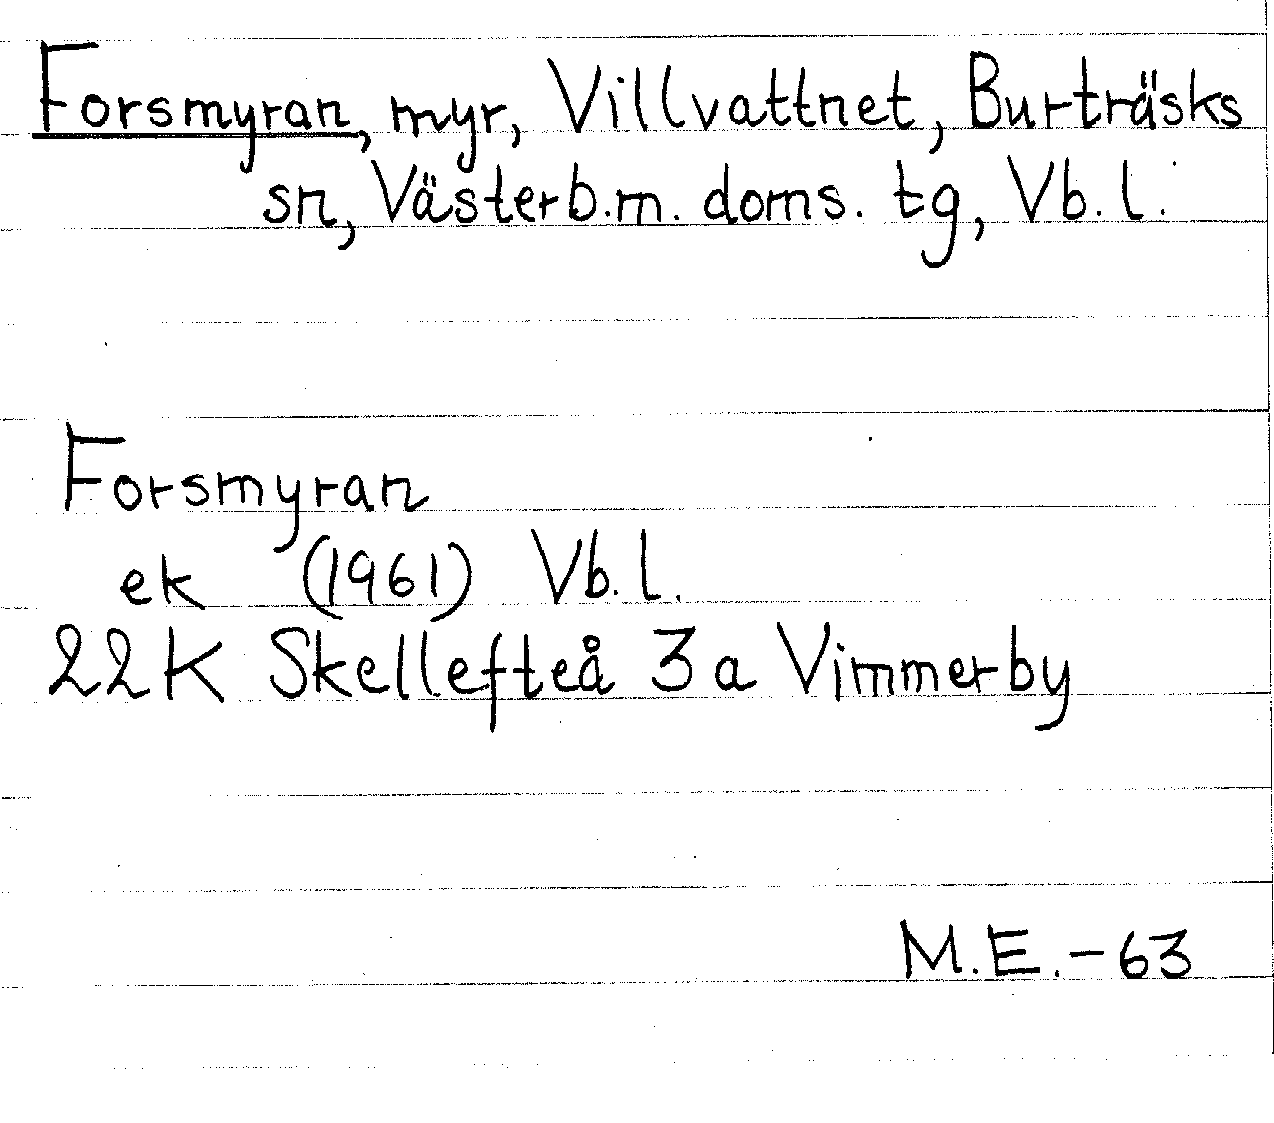 Forsmyran, myr, Villvattnet, Burträsks
sn, Västerb.m. doms. tg, Vb. l.
Forsmyran
ek (1961) Vb. l.
22K Skellefteå 3a Vimmerby
M.E.-63